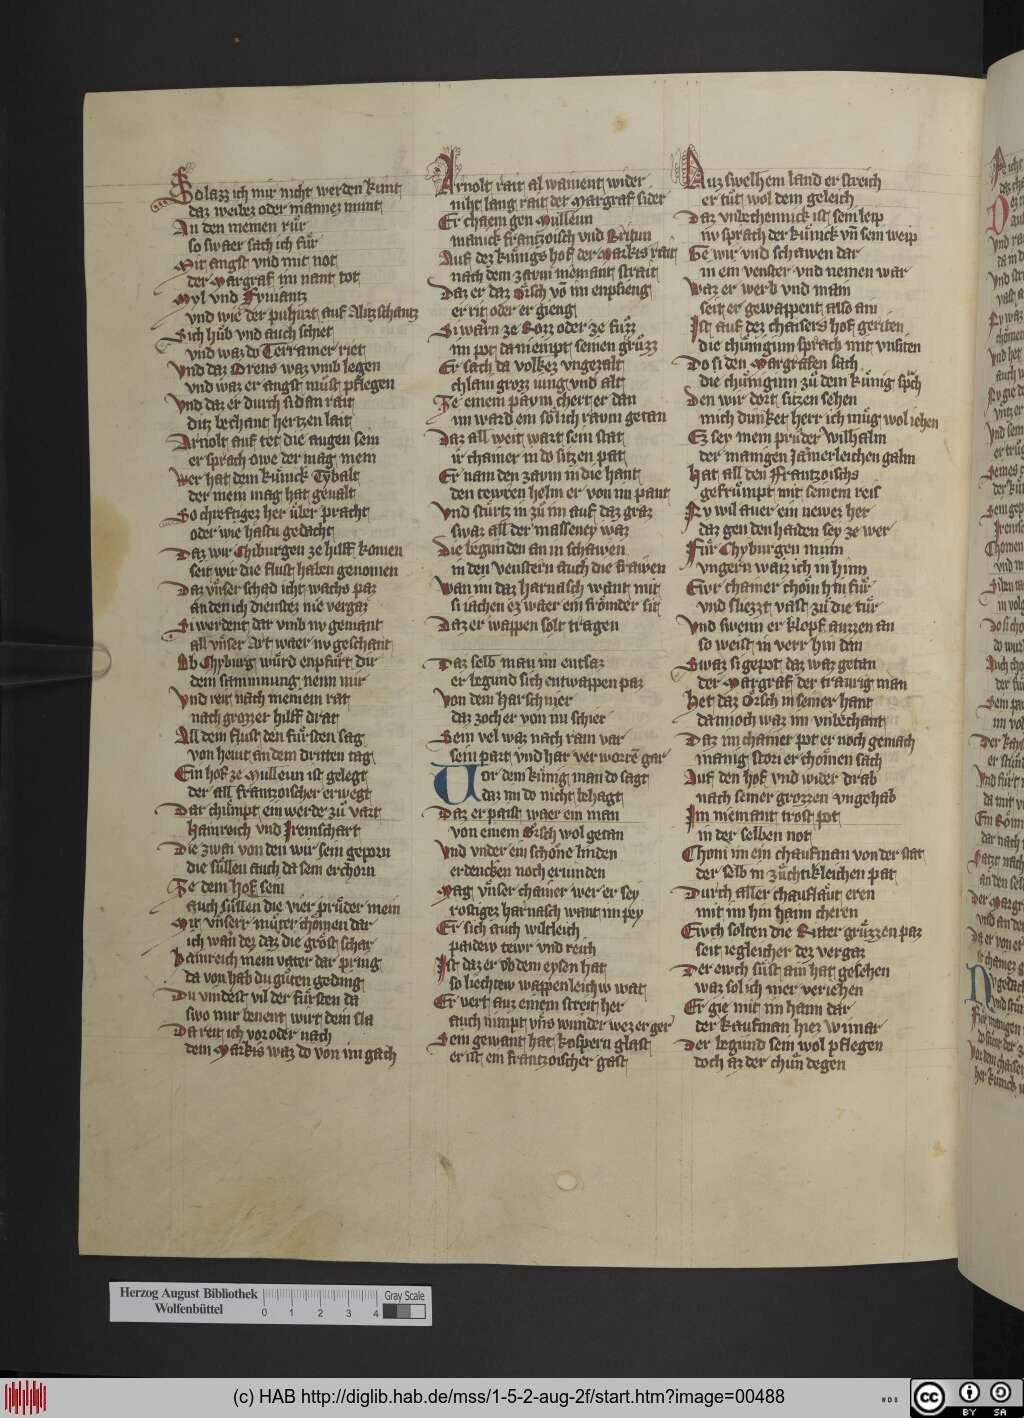 So lazz ich mir nicht werden kunt
daz weibez oder mannez munt
An den meinen rur
so swaer sach ich für
Mit angst vnd mit not
der Margraf im nant tot
Myl vnd Fywianz
vnd wie der puhurt auf Alitzschantz
Sich hub vnd auch schiet
vnd waz do Terramer riet
Vnd daz Orens waz vmb legen
vnd waz er angst must pflegen
Vnd daz er durch si dan rait
ditz bechant hertzen lait
Arnolt auf tet die augen sein
er sprach owe der mag mein
Wer hat dem kunick Tybalt
der mein mag hat gevalt
So chreftigez her uber pracht
oder wie hastu gedacht
Daz wir Chiburgen ze hilff komen
seit wir die flust haben genomen
Daz vnser schad icht wachs paz
an den ich dienstez nie vergaz
Si werdent dar vmb nv gemant
all vnser Art waer nv geschant
Ob Chyburg wurd enpfurt dir
dein sammnung nenn mir
Vnd reit nach meinem rat
nach grozzer hilff drat
All dem flust den fursten sag
von hewt an dem dritten tag
Ein hof ze Mulleun ist gelegt
der all frantzoischer erwegt
Dar chumpt ein werde zu vart
Hamreich vnd Iremschart
Die zwai von den wir sein geporn
die sullen auch da sein erchorn
Ze dem hof sein
auch sullen die vier pruder mein
Mit vnserr muter chomen dar
ich wan dez daz die grost schar
Hainreich mein vater dar pring
da von hab du guten geding
Du vindest vil der fursten da
swo mir benent wirt dein sla
Da reit ich vor oder nach
dem Markis waz do von im gach
Arnolt rait al wainent wider
niht lang rait der Margraf sider
Er chaem gen Mulleun
manick frantzoisch vnd Britun
Auf dez kunigs hof der Markis rait
nach dem zavm niemant strait
Daz er daz Orsch von im enpfieng
er rit oder er gieng
Si warn ze Rozz oder ze fuzz
im pot da niempt seinen gruzz
Er sach da volkez vngezalt
chlain grozz iung vnd alt
Ze einem pavm chert er dan
im ward ein solich rawm getan
Daz all weit wart sein stat
ir chainer in do sitzen pat
Er nam den zavm in die hant
den tewren helm er von im pant
Vnd sturtz in zu im auf daz graz
swaz all der masseney waz
Die begunden an in schawen
in den venstern auch die frawen
Wan im daz harnasch want mit
si iachen ez waer ein fromder sit
Daz er wappen solt tragen
Daz selb man im entsaz
er begund sich entwappen paz
Von dem Harschnier
daz zoch er von im schier
Sein vel waz nach ram var
sein part vnd har verworren gar
Vor dem kunig man do sagt
daz im do nicht behagt
Daz er paist waer ein man
von einem Orsch wol getan
Vnd vnder ein schone linden
erdencken noch erunden
Mag vnser chainer wer er sey
rostigez harnasch want im pey
Er sich auch wirleich
paidew tewr vnd reich
Ist daz er ob dem eysen hat
so liechtew wappenleichw wat
Er vert auz einem streit her
auch nimpt vns wunder wez er ger
Sein gewant hat kospern glast
er ist ein frantzoischer gast
Auz swelhem land er streich
er tut wol dem geleich
Daz vnbethennick ist sein leip
nv sprach der kunick vn sein weip
Ge wir vnd schawen dar
in ein venster vnd nemen war
Waz er werb vnd man
seit er gewappent also an
Ist auf dez chaisers hof geriten
die chuniginn sprach mit vnsiten
Do si den Margrafen sach
die chuniginn zu dem kunig sprach
Den wir dort sitzen sehen
mich dunket herr ich mug wol iehen
Ez sey mein pruder Wilhalm
der manigen Jamerleichen galm
Hat all den Frantzoischs
gefrumpt mit seinem reis
Nv wil auer ein newez her
daz gen den haiden sey ze wer
Fur Chyburgen minn
vngern waiz ich in hinn
Ewr chainer chom hin fur
vnd sliezzt vast zu die tur
Vnd swenn er klopf auzzen an
so weist in verr hin dan
Swaz si gepot daz waz getan
der Margraf der traurig man
Het daz Orsch in seiner hant
dannoch waz im vnbechant
Daz im chainer pot er noch gemach
manig stozi er chomen sach
Auf den hof vnd wider drab
nach seiner grozzen vngehab
Im niemant trost pot
in der selben not
Chom im ein chaufman von der stat
der selb in zuchtikleichen pat
Durch aller chauflaut eren
mit im hin hann cheren
Ewch solten die Ritter gruzzen paz
seit iegleicher dez vergaz
Der ewch sust ain hat gesehen
waz sol ich mer veriehen
Er gie mit im hann dar
der Kaufman hiez Wimar
Der begund sein wol pflegen
doch az der chun degen
Herzog August Bibliothek
Wolfenbüttel
0 1 2 3 4
Gray Scale
(c) HAB http://diglib.hab.de/mss/1-5-2-aug-2f/start.htm?image=00488
WDB
CC BY SA